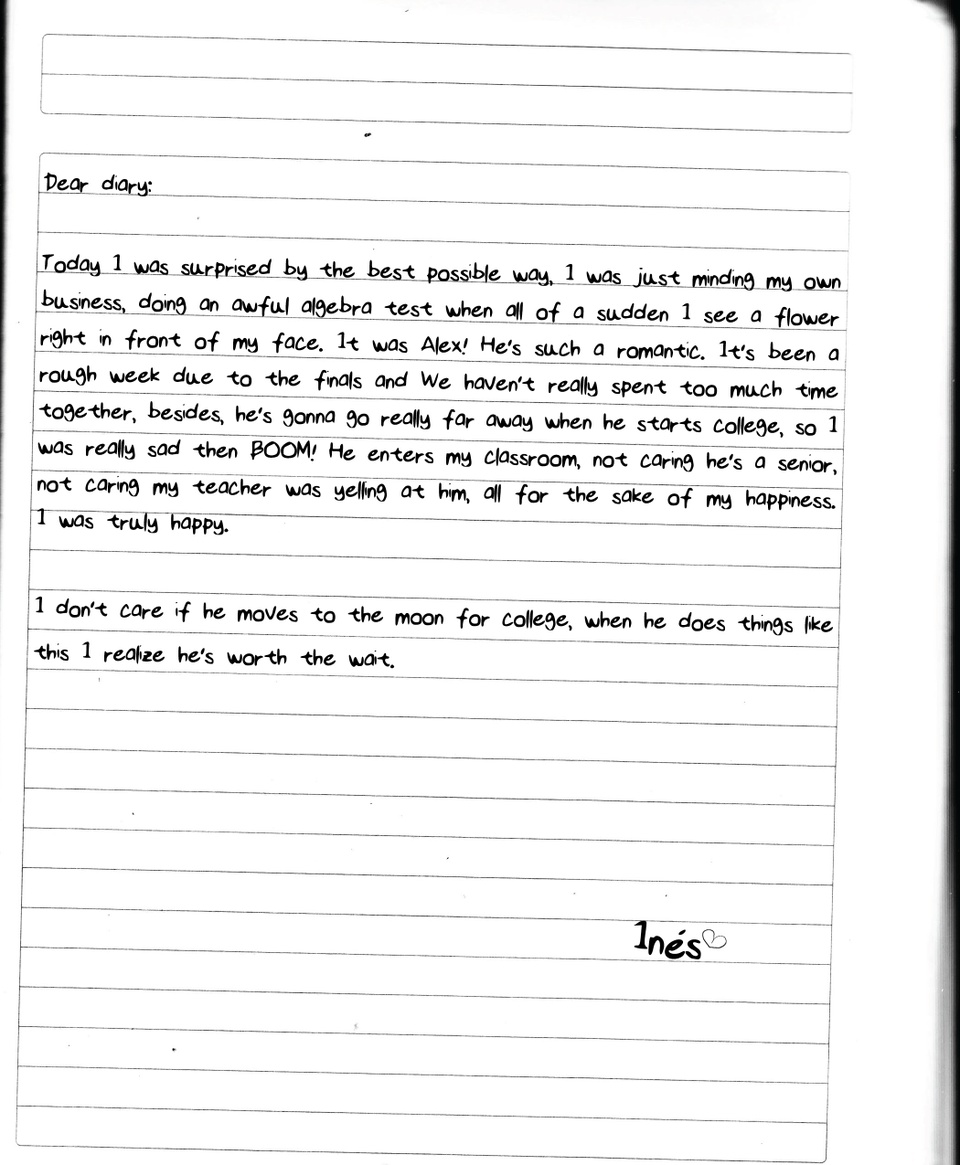 Dear diary:
Today I was surprised by the best possible way, I was just minding my own
business, doing an awful algebra test when all of a sudden I see a flower
right in front of my face. It was Alex! He's such a romantic. It's been a
rough week due to the finals and We haven't really spent too much time
together, besides, he's gonna go really far away when he starts college, so I
was really sad then BOOM! He enters my classroom, not caring he's a senior,
not caring my teacher was yelling at him, all for the sake of my happiness.
I was truly happy.
I don't care if he moves to the moon for college, when he does things like
this I realize he's worth the wait.
Inés♡